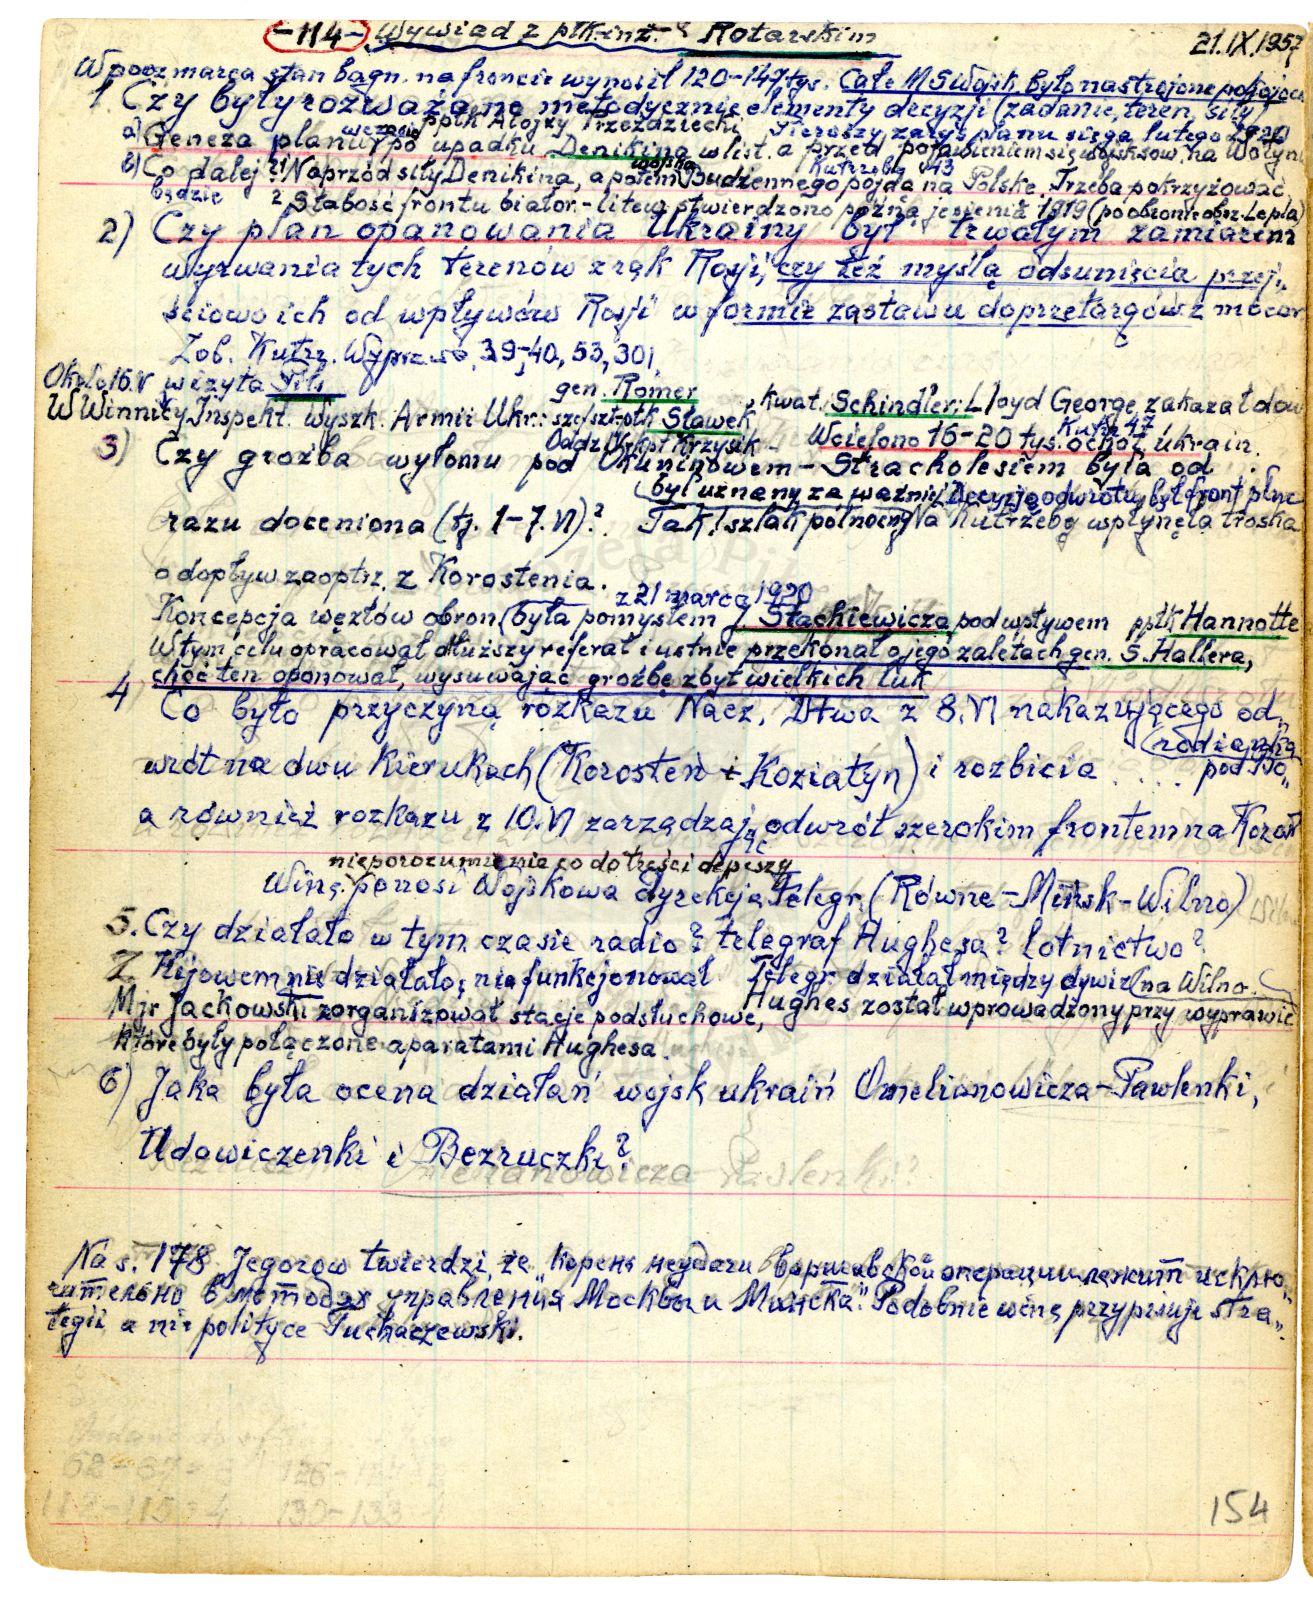 -114- Wywiad z płk.inż. Rotarskim 21.IX.1957
W pocz marca stan bagn. na froncie wynosił 120-147 tys. Całe MSWojsk. było nastrojone pokojowo
1. Czy były rozważane metodycznie elementy decyzji (zadanie, teren, siły)
wczas ppłk Alojzy Przeździecki Pierwszy zarys planu sięga lutego 1920
a) Geneza planu po upadku Denikina w list. a przed pojawieniem się wojsk sow. na Wołyniu
wojska Kutrzeba 43
b) Co dalej? Naprzód siły Denikina, a potem Budiennego pójdą na Polskę. Trzeba pokrzyżować
będzie 2 Słabość frontu białor.-litew. stwierdzono późną jesienią 1919 (po obronie obsz. Lepla)
2) Czy plan opanowania Ukrainy był trwałym zamiarem
wyrwania tych terenów z rąk Rosji, czy też myślą odsunięcia przej„
ściowo ich od wpływów Rosji w formie zastawu do przetargów z mocar
Zob. Kutrz. Wypr. 39-40, 53, 301,
Około 16.V wizyta Pił. gen. Romer kwat. Schindler: Lloyd George zakazał dow
W Winnicy Inspekt. wyszk. Armii Ukr.: szef szt. płk Sławek Kutrz 47
Oddz. kpt Krzysik - Wcielono 16-20 tys. ochot ukrain.
3) Czy groźba wyłomu pod Okuninowem - Stracholesiem była od
był uznany za ważniej. Decyzją odwrotu był front płnc
razu doceniona (tj. 1-7.VI)? Tak! szlak północny Na Kutrzebę wpłynęła troska
o dopływ zaoptrz. z Korostenia.
z 21 marca 1920
Koncepcja węzłów obron (była pomysłem J. Stachiewicza, pod wpływem ppłk Hannotte
W tym celu opracował dłuższy referat i ustnie przekonał o jego zaletach gen. S. Hallera,
choć ten oponował, wysuwając groźbę zbyt wielkich luk
4 Co było przyczyną rozkazu Nacz. Dtwa z 8.VI nakazującego od„
wrót na dwu kierukach (Korosteń i Koziatyn) i rozbicia . . . . (rodzianka pod Bo„
a również rozkazu z 10.VI zarządzając odwrót szerokim frontem na Korost
nieporozumienie co do treści depeszy
Winę ponosi Wojskowa dyrekcja Telegr. (Równe - Mińsk - Wilno)
5. Czy działało w tym czasie radio? telegraf Hughesa? lotnictwo?
Z Kijowem nie działało, nie funkcjonował Telegr. działał między dywiz (na Wilno.
Mjr Jackowski zorganizował stacje podsłuchowe, Hughes został wprowadzony przy wyprawie
które były połączone aparatami Hughesa.
6) Jaka była ocena działań wojsk ukraiń Omelianowicza-Pawlenki,
Udowiczenki i Bezruczki?
Na s. 178 Jegorow twierdzi, że „Корень неудачи варшавской операции лежит исклю„
чительно в методах управления Москвы и Минска". Podobnie winę przypisuje stra„
tegii a nie polityce Tuchaczewski.
154